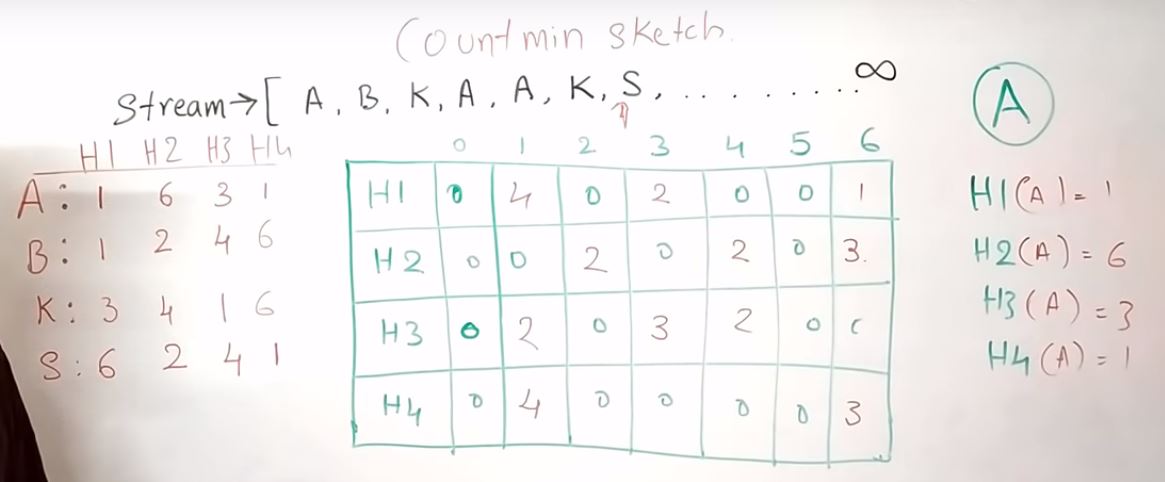 Countmin sketch.
Stream→[ A, B, K, A, A, K, S, . . . . . . . . . ∞
H1 H2 H3 H4
A: 1 6 3 1
B: 1 2 4 6
K: 3 4 1 6
S: 6 2 4 1
0 1 2 3 4 5 6
H1 0 4 0 2 0 0 1
H2 0 0 2 0 2 0 3.
H3 0 2 0 3 2 0
H4 0 4 0 0 0 0 3
A
H1(A)= 1
H2(A) = 6
H3(A) = 3
H4(A) = 1